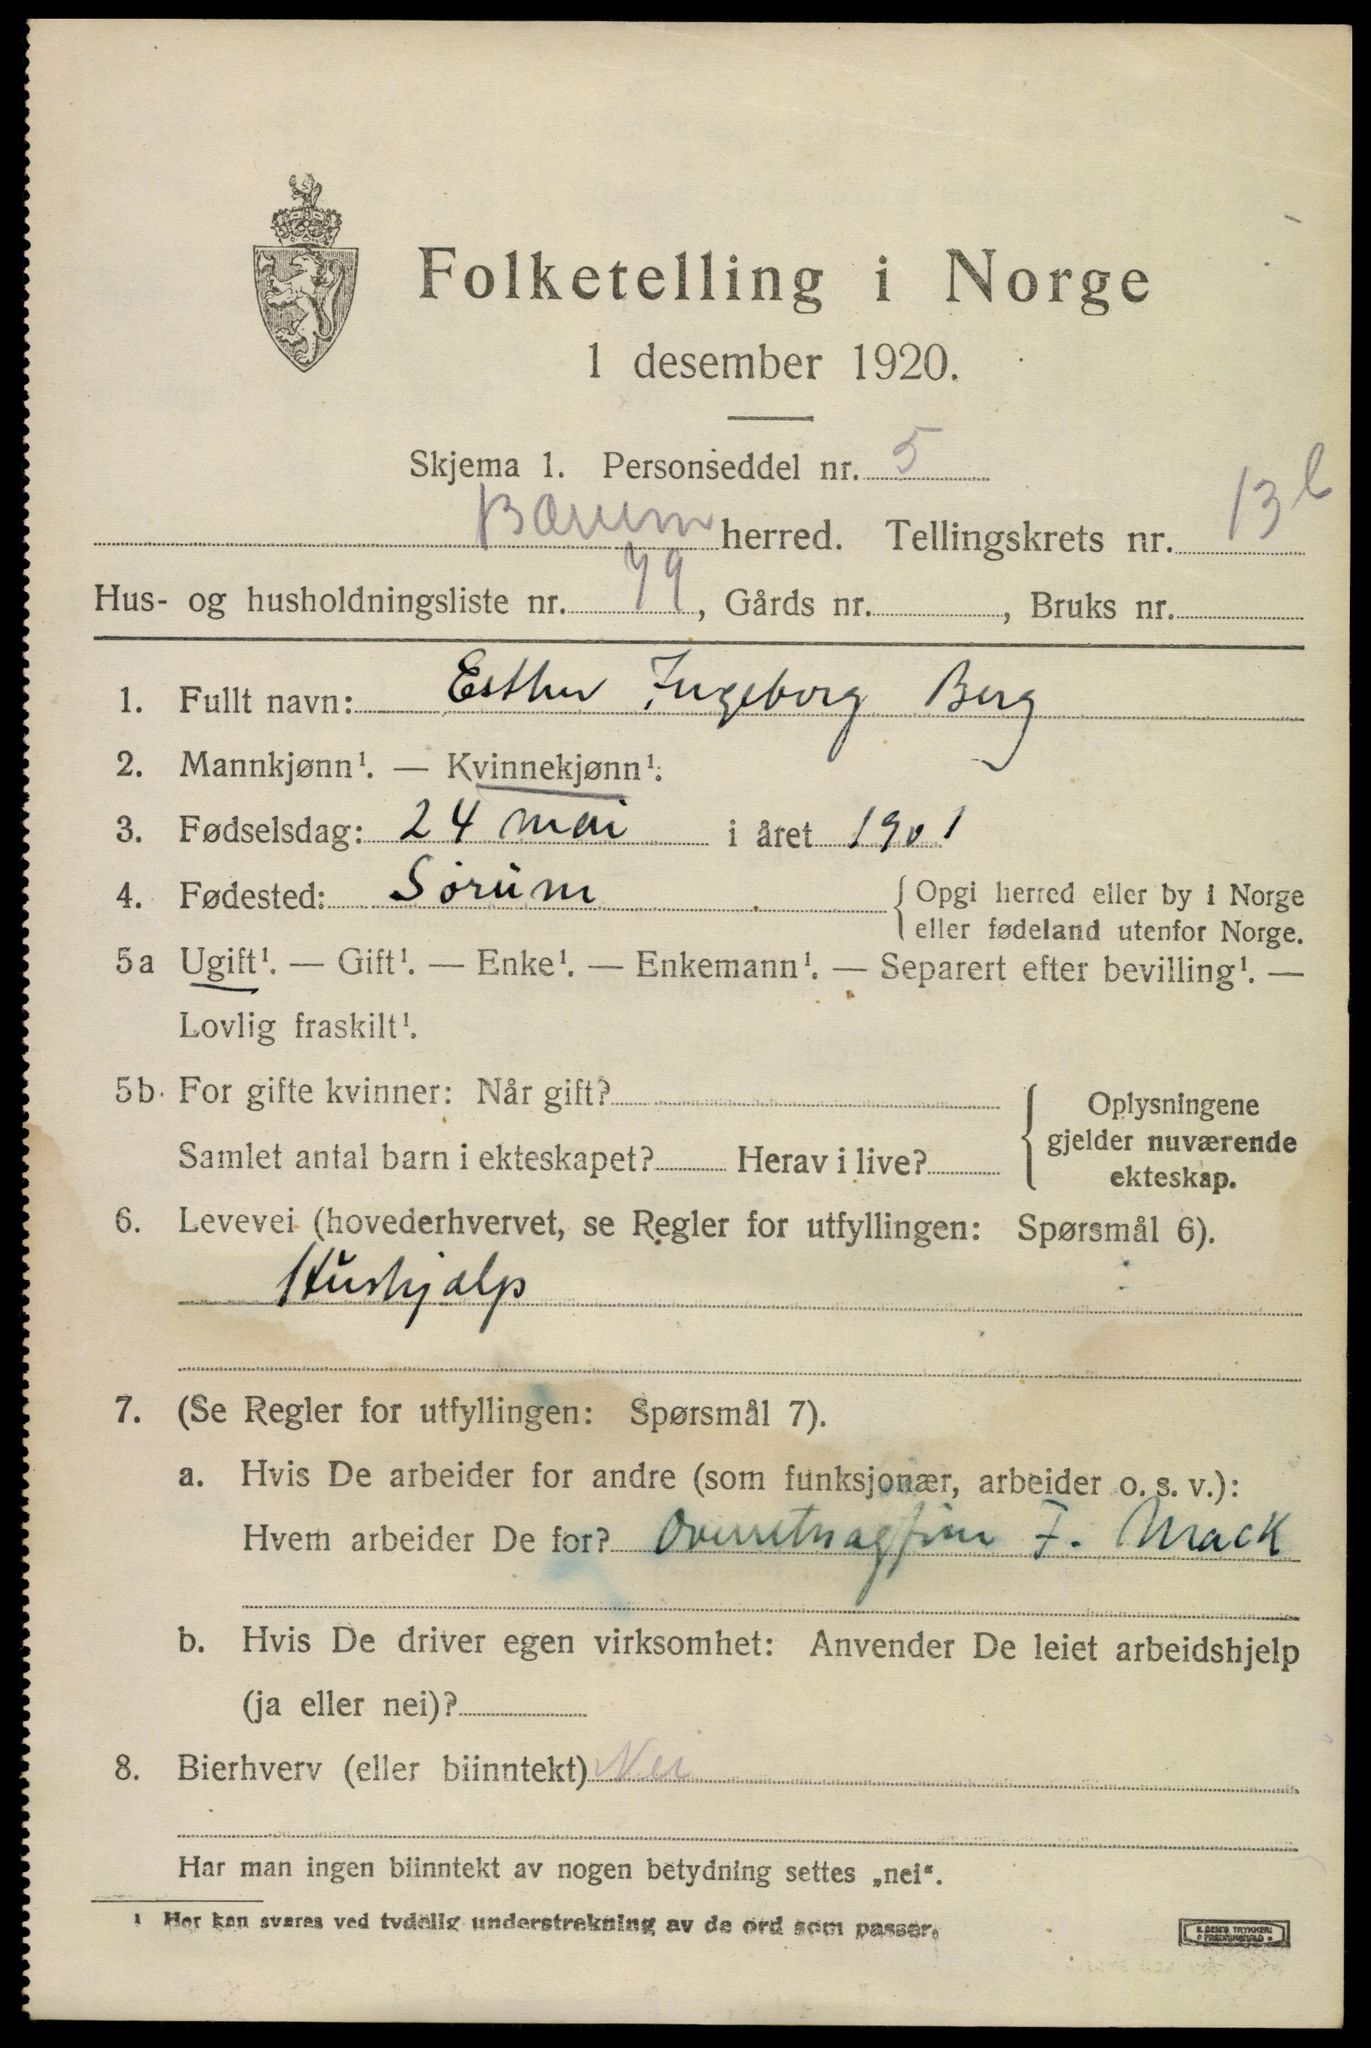 Folketelling i Norge
1 desember 1920.
Skjema 1. Personseddel nr. 5
Bærum herred. Tellingskrets nr. 13 b
Hus- og husholdningsliste nr. 79, Gårds nr. , Bruks nr.
1. Fullt navn: Esther Ingeborg Berg
2. Mannkjønn¹. — Kvinnekjønn¹.
3. Fødselsdag: 24 mai i året 1901
4. Fødested: Sørum {Opgi herred eller by i Norge
eller fødeland utenfor Norge.
5a Ugift¹. — Gift¹. — Enke¹. — Enkemann¹. — Separert efter bevilling¹. —
Lovlig fraskilt¹.
5b. For gifte kvinner: Når gift?
Samlet antal barn i ekteskapet? Herav i live?
{Oplysningene
gjelder nuværende
ekteskap.
6. Levevei (hovederhvervet, se Regler for utfyllingen: Spørsmål 6).
Hushjælp
7. (Se Regler for utfyllingen: Spørsmål 7).
a. Hvis De arbeider for andre (som funksjonær, arbeider o. s. v.):
Hvem arbeider De for? F. Mack
b. Hvis De driver egen virksomhet: Anvender De leiet arbeidshjelp
(ja eller nei)?
8. Bierhverv (eller biinntekt) Nei
Har man ingen biinntekt av nogen betydning settes „nei“.
1 Her kan svares ved tydelig understrekning av de ord som passer.